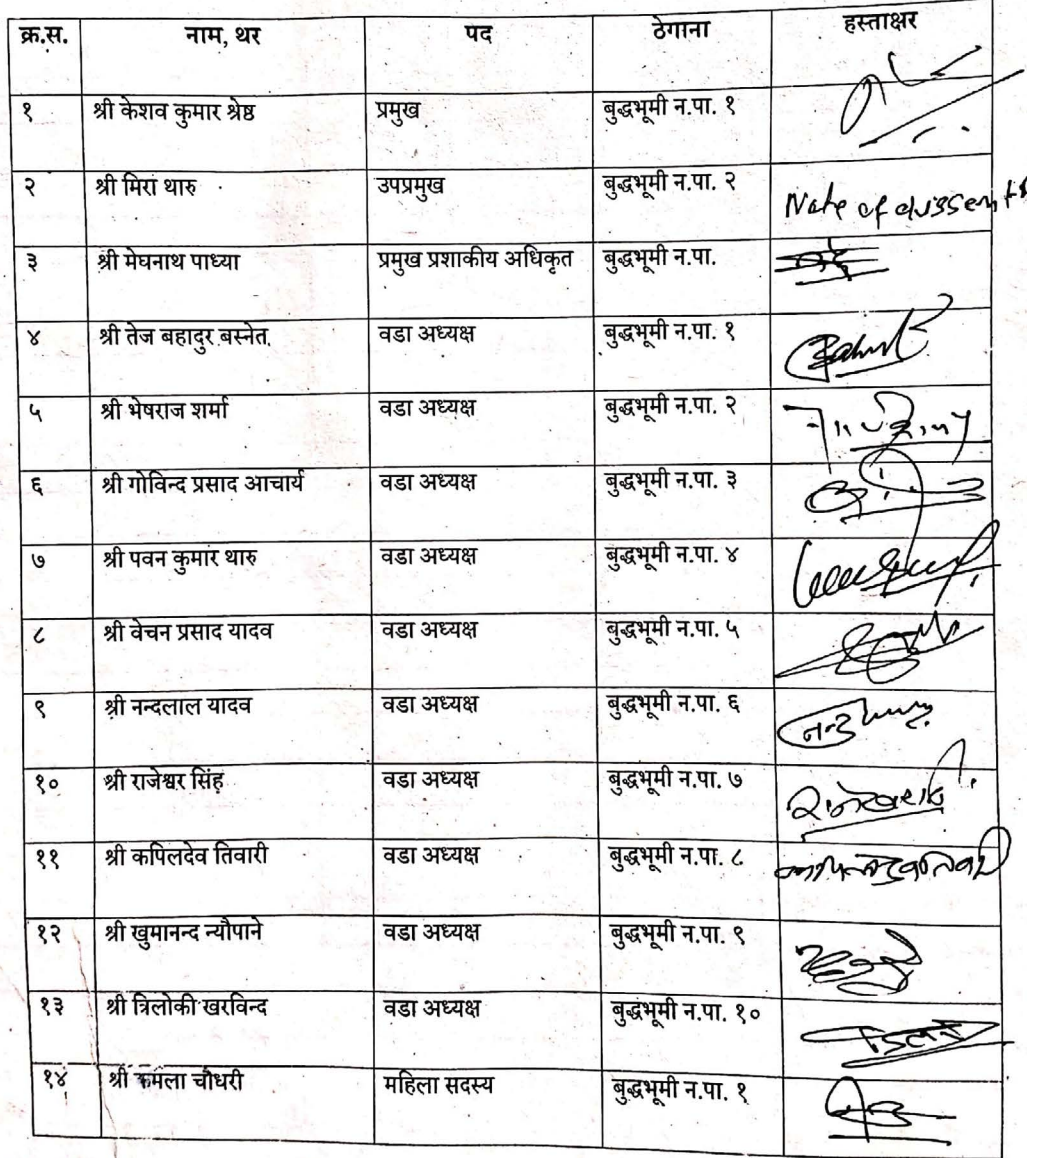 क्र.स. नाम, थर पद ठेगाना हस्ताक्षर
१ श्री केशव कुमार श्रेष्ठ प्रमुख बुद्धभूमी न.पा. १
२ श्री मिरा थारु उपप्रमुख बुद्धभूमी न.पा. २ Note of dissent
३ श्री मेघनाथ पाध्या प्रमुख प्रशाकीय अधिकृत बुद्धभूमी न.पा.
४ श्री तेज बहादुर बस्नेत वडा अध्यक्ष बुद्धभूमी न.पा. १
५ श्री भेषराज शर्मा वडा अध्यक्ष बुद्धभूमी न.पा. २
६ श्री गोविन्द प्रसाद आचार्य वडा अध्यक्ष बुद्धभूमी न.पा. ३
७ श्री पवन कुमार थारु वडा अध्यक्ष बुद्धभूमी न.पा. ४
८ श्री वेचन प्रसाद यादव वडा अध्यक्ष बुद्धभूमी न.पा. ५
९ श्री नन्दलाल यादव वडा अध्यक्ष बुद्धभूमी न.पा. ६
१० श्री राजेश्वर सिंह वडा अध्यक्ष बुद्धभूमी न.पा. ७
११ श्री कपिलदेव तिवारी वडा अध्यक्ष बुद्धभूमी न.पा. ८
१२ श्री खुमानन्द न्यौपाने वडा अध्यक्ष बुद्धभूमी न.पा. ९
१३ श्री त्रिलोकी खरविन्द वडा अध्यक्ष बुद्धभूमी न.पा. १०
१४ श्री कमला चौधरी महिला सदस्य बुद्धभूमी न.पा. १